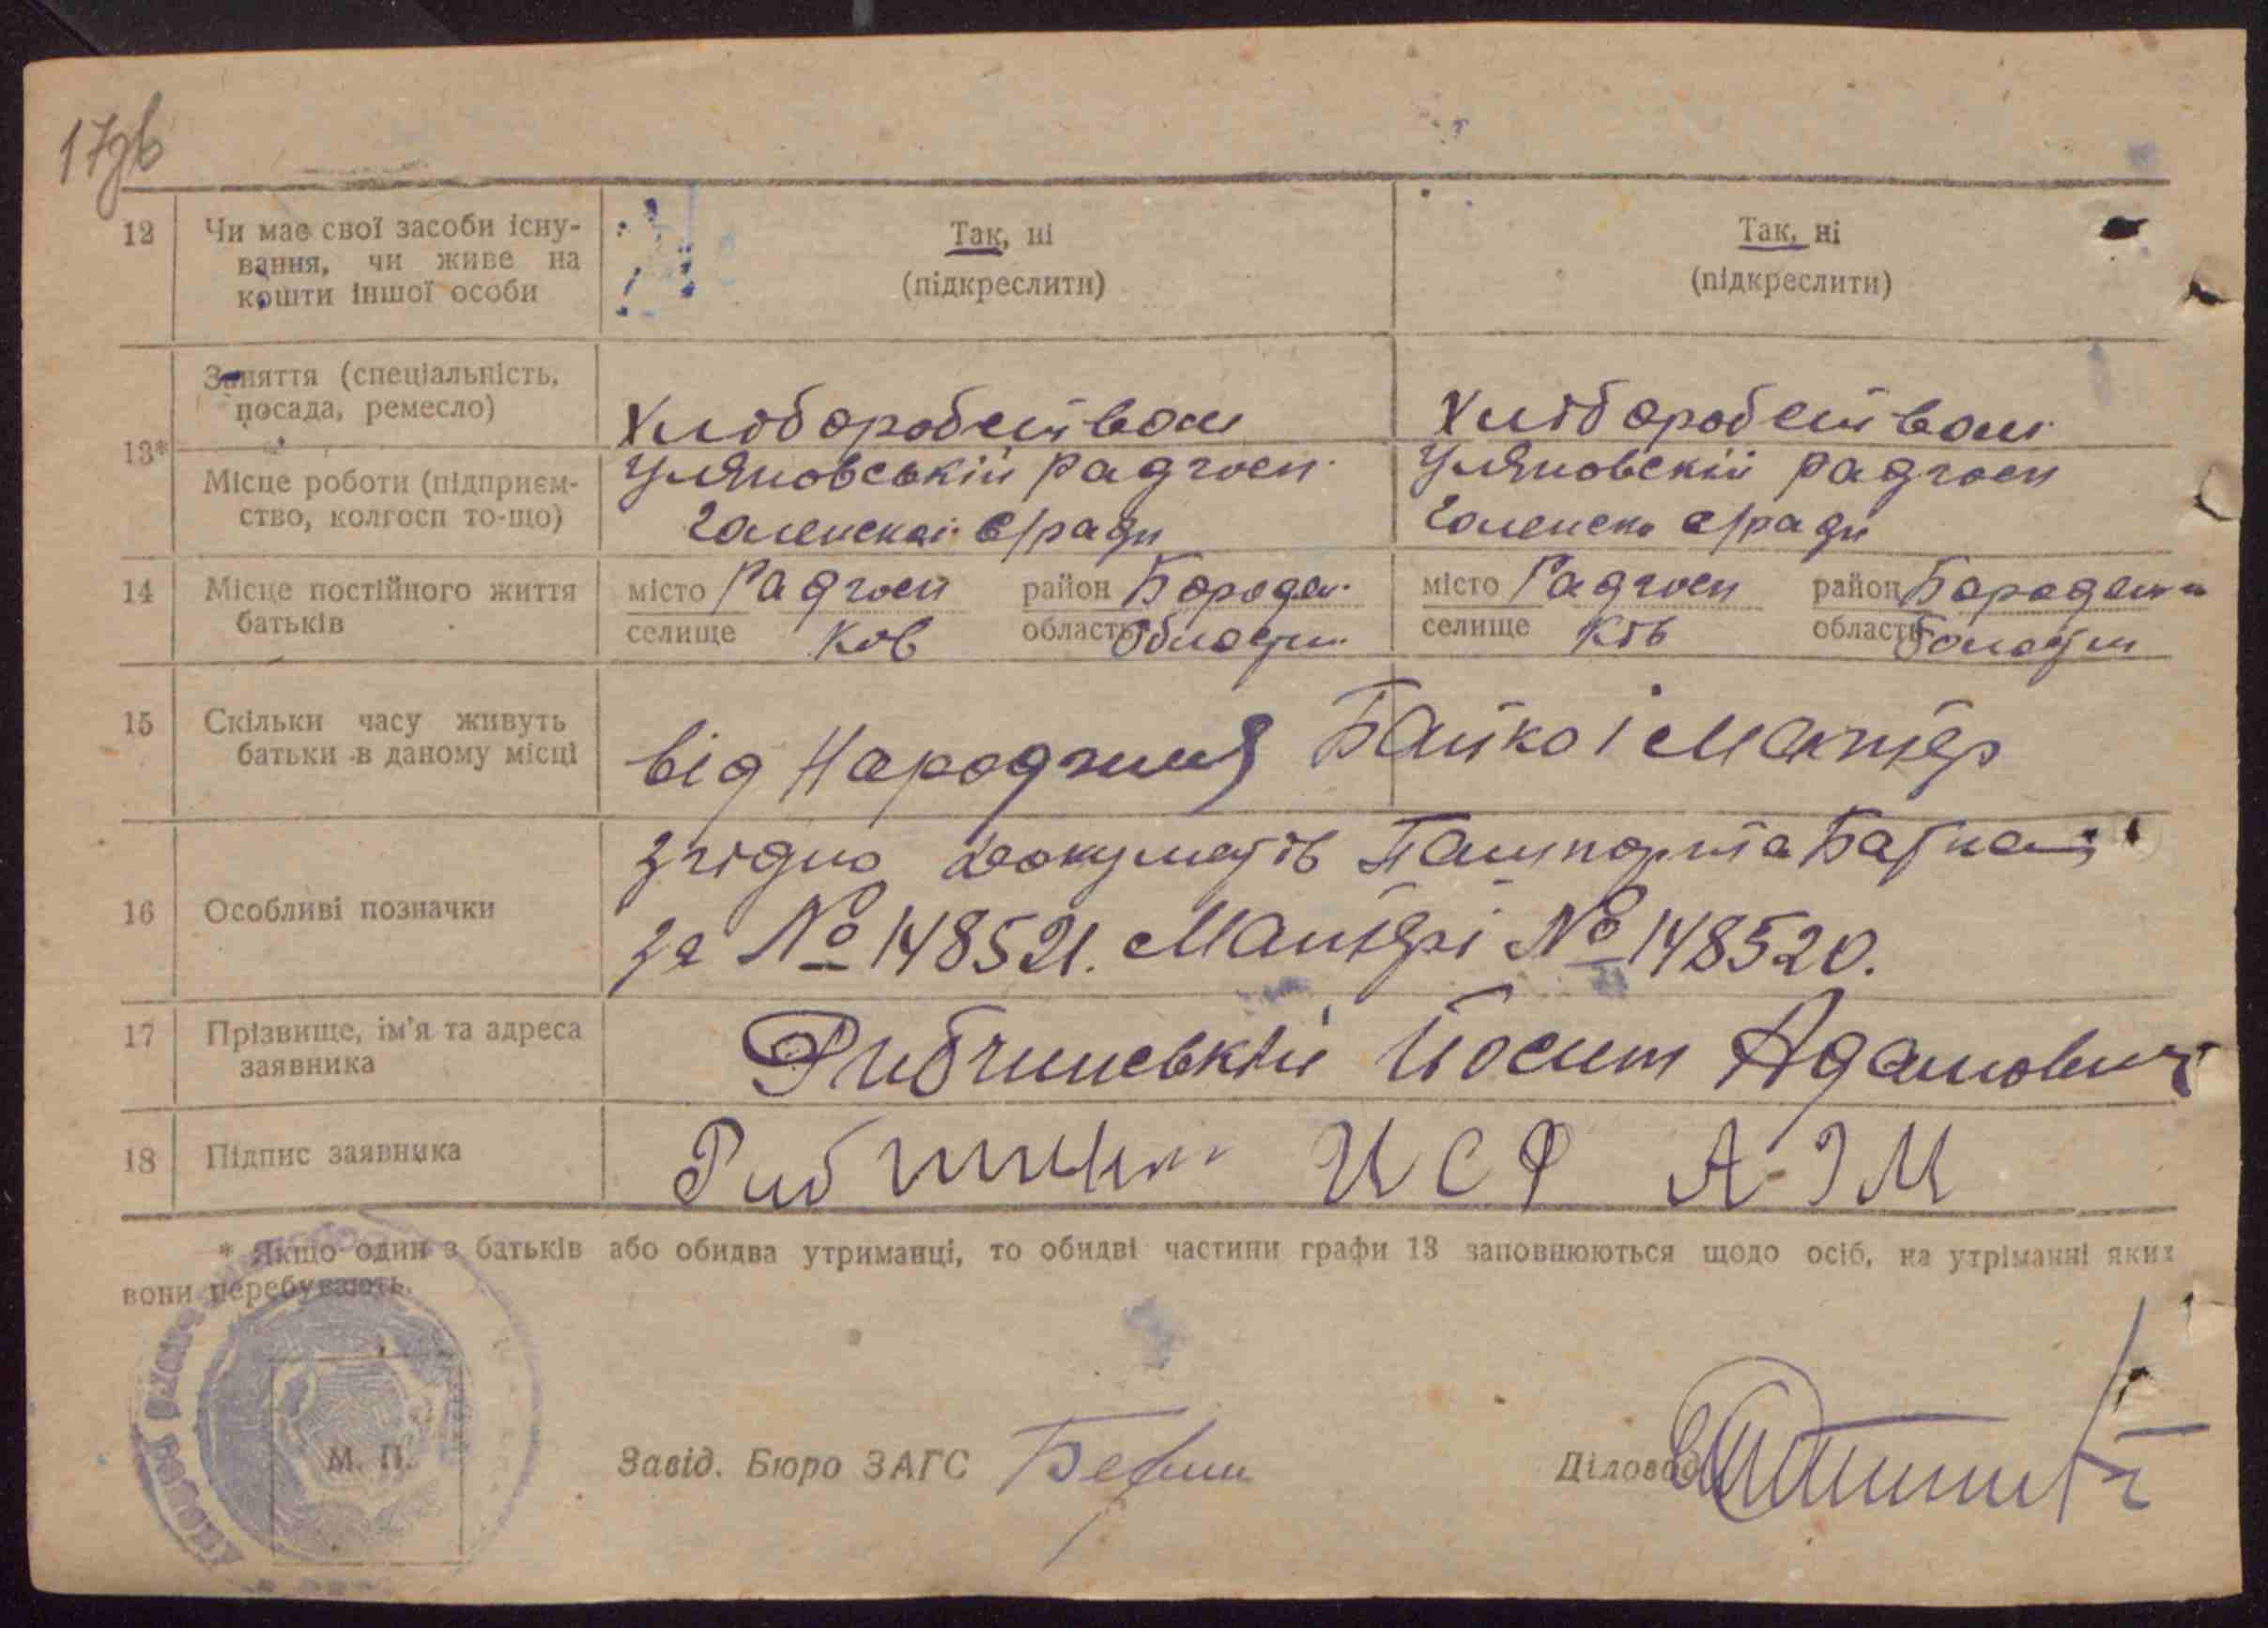 17зв
12 Чи має свої засоби існу-
вання, чи живе на
кошти іншої особи
Так, ні
(підкреслити)
Так, ні
(підкреслити)
13* Заняття (спеціальність,
посада, ремесло)
Хліборобством
Хліборобством
Місце роботи (підприєм-
ство, колгосп то-що)
Уляновській Радгосп
с/ради
Уляновскій Радгосп
с/ради
14 Місце постійного життя
батьків
місто Радгосп район Бородян.
селище Київ область Області
місто Радгосп район
селище Київ область
15 Скільки часу живуть
батьки в даному місці
від Народження Батько і Матер
16 Особливі позначки
Згідно Документів Пашпорта Батька
за № 148521. Матері № 148520.
17 Прізвище, ім'я та адреса
заявника
Рибчинській Йосип Адамович
18 Підпис заявника
* Якщо один з батьків або обидва утриманці, то обидві частини графи 13 заповнюються щодо осіб, на утріманні яких
вони перебувають.
М. П.
Завід. Бюро ЗАГС
Діловод